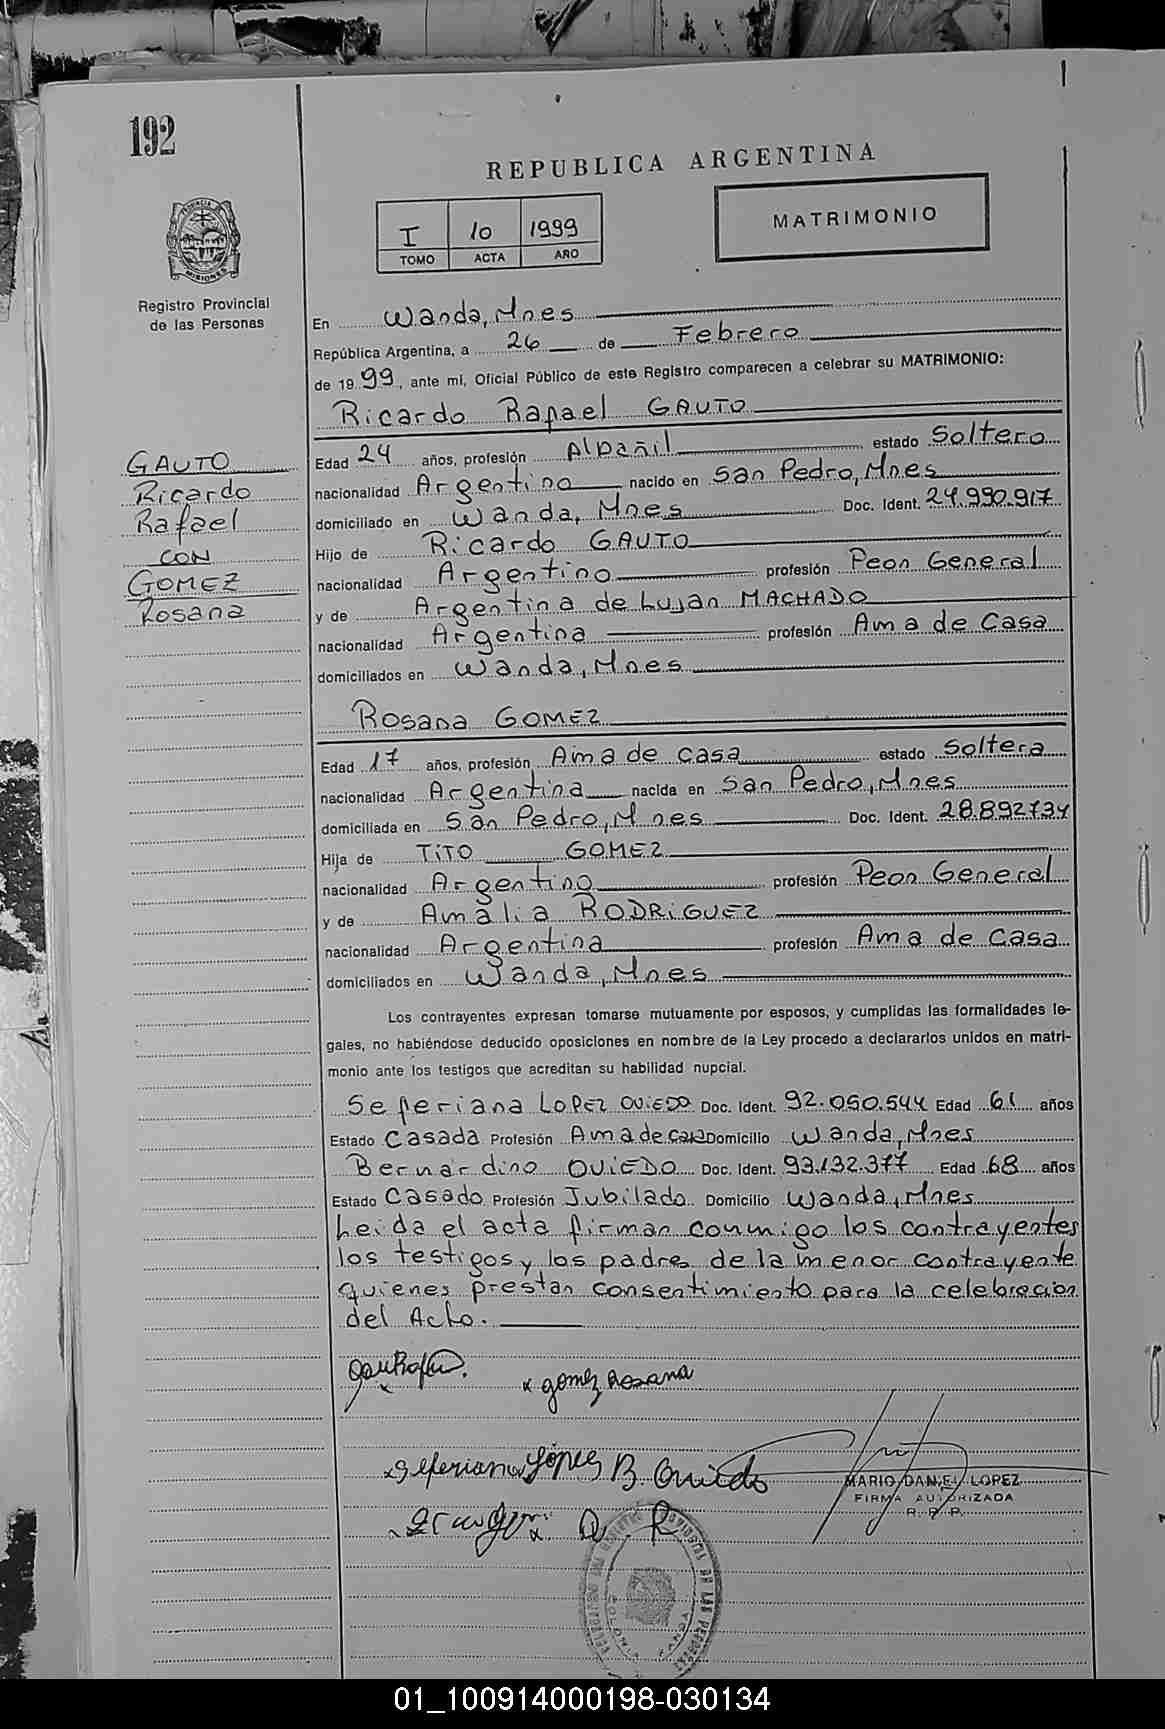 192
REPUBLICA ARGENTINA
PROVINCIA DE MISIONES
Registro Provincial
de las Personas
I 10 1999
TOMO ACTA AÑO
MATRIMONIO
GAUTO
Ricardo
Rafael
CON
GOMEZ
Rosana
En Wanda, Mnes
República Argentina, a 26 de Febrero
de 1999, ante mi, Oficial Público de este Registro comparecen a celebrar su MATRIMONIO:
Ricardo Rafael GAUTO
Edad 24 años, profesión Albañil estado Soltero
nacionalidad Argentino nacido en San Pedro, Mnes
domiciliado en Wanda, Mnes Doc. Ident. 24.990.917
Hijo de Ricardo GAUTO
nacionalidad Argentino profesión Peon General
y de Argentina de Lujan MACHADO
nacionalidad Argentina profesión Ama de Casa
domiciliados en Wanda, Mnes
Rosana GOMEZ
Edad 17 años, profesión Ama de casa estado Soltera
nacionalidad Argentina nacida en San Pedro, Mnes
domiciliada en San Pedro, Mnes Doc. Ident. 28.892.734
Hija de TiTO GOMEZ
nacionalidad Argentino profesión Peon General
y de Amalia RODRiGUEZ
nacionalidad Argentina profesión Ama de casa
domiciliados en Wanda, Mnes
Los contrayentes expresan tomarse mutuamente por esposos, y cumplidas las formalidades le-
gales, no habiéndose deducido oposiciones en nombre de la Ley procedo a declararlos unidos en matri-
monio ante los testigos que acreditan su habilidad nupcial.
Seferiana LOPEZ OViEDO Doc. Ident. 92.050.544 Edad 61 años
Estado Casada Profesión Ama de casa Domicilio Wanda, Mnes
Bernardino OViEDO Doc. Ident. 93.132.377 Edad 68 años
Estado Casado Profesión Jubilado Domicilio Wanda, Mnes
Leida el acta firman conmigo los contrayentes
los testigos y los padres de la menor contrayente
quienes prestan consentimiento para la celebracion
del Acto.
x gomez Rosana
x Seferiana López B. Oviedo
MARIO DANIEL LOPEZ
FIRMA AUTORIZADA
R. P. P.
A. R
01_100914000198-030134